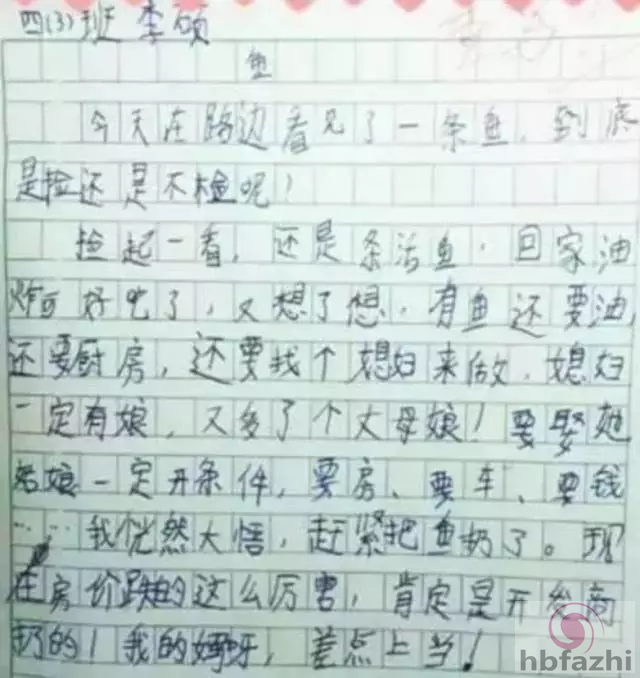 四(3)班 李硕
鱼
今天在路边看见了一条鱼，到底
是捡还是不捡呢！
捡起一看，还是条活鱼．回家油
炸可好吃了，又想了想．有鱼还要油，
还要厨房，还要找个媳妇来做．媳妇
一定有娘，又多了个丈母娘！要娶她
姑娘一定开条件，要房、要车、要钱
……我恍然大悟，赶紧把鱼扔了。现
在房价跌的这么厉害，肯定是开发商
扔的！我的妈呀，差点上当！
hbfazhi